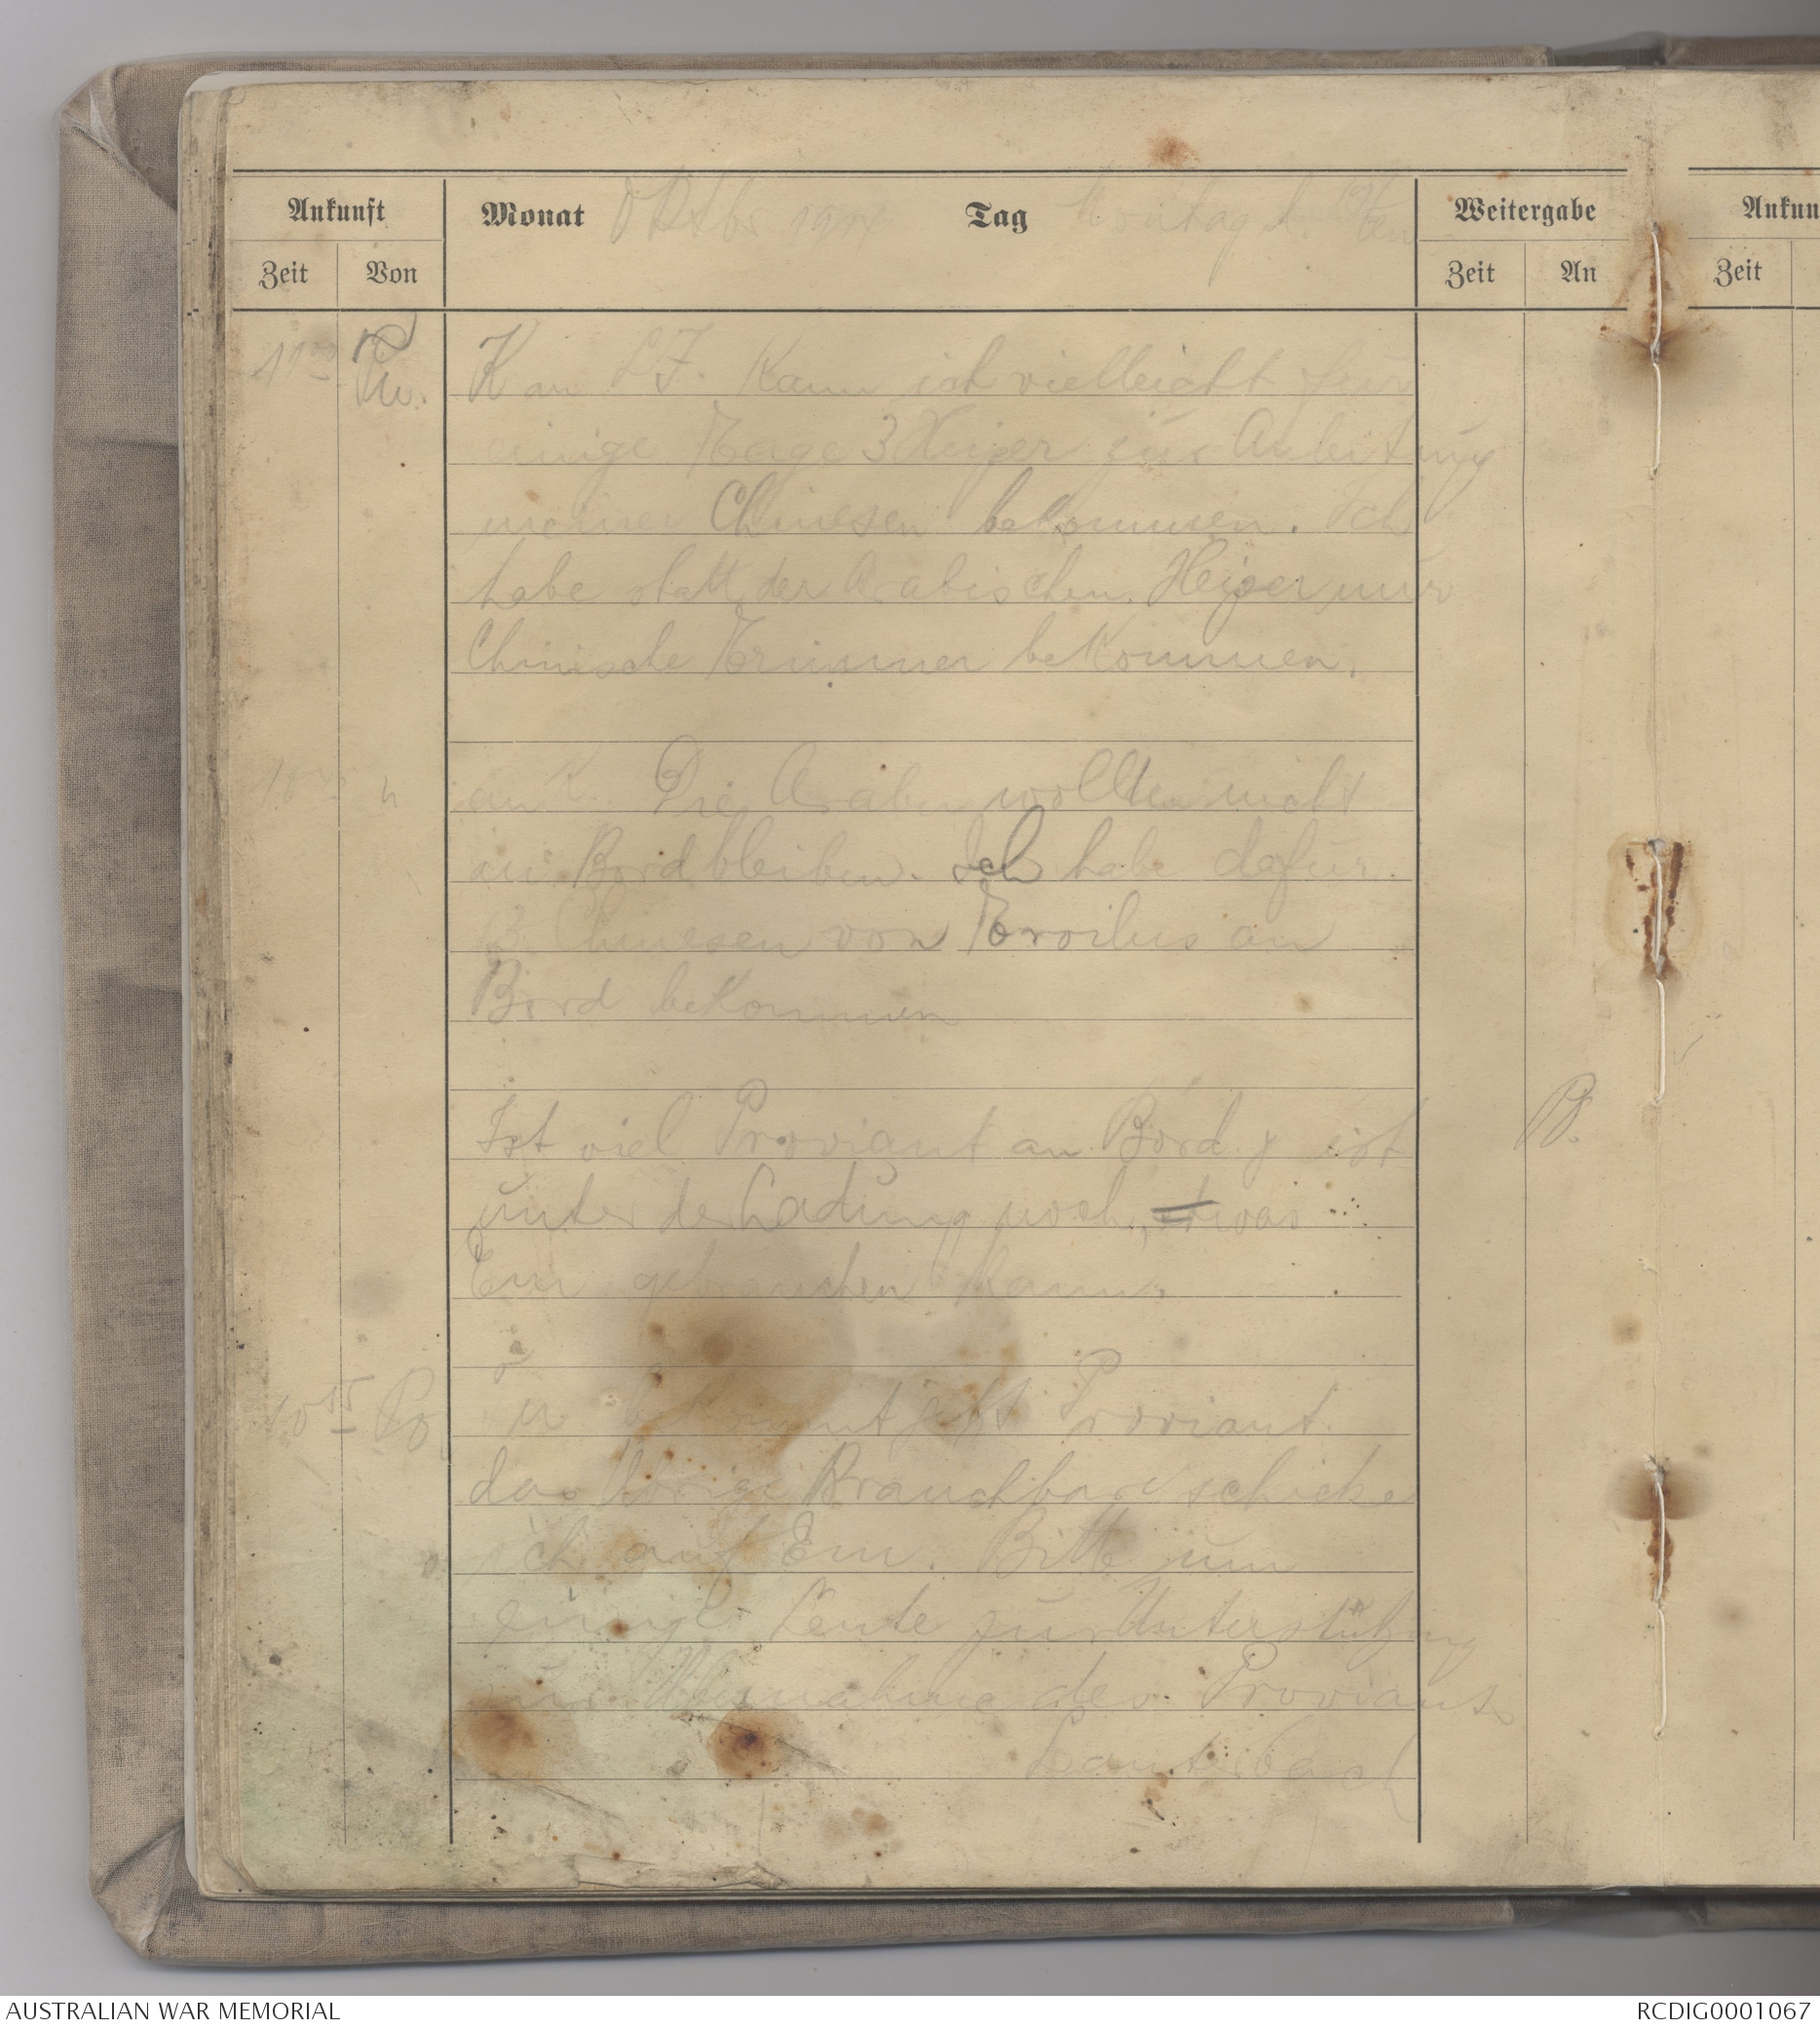 Ankunft
Monat Oktbr 1914 Tag Montag d.
Weitergabe
Zeit Von
Zeit An
Ankun
Zeit
11⁰⁰
K an L.J. Kann ich vielleicht für
einige Tage 3 Heizer zur Anleitung
meiner Chinesen bekommen. Ich
habe statt der Arabischen Heizer nur
Chinische Trimmer bekommen.
an K. Die Araber wollten nicht
an Bord bleiben. Ich habe dafür
Chinesen von Troilus an
Bord bekommen
Ist viel Proviant an Bord & ist
unter der Ladung noch, was
Em gebrauchen kann.
P.
10¹⁵
bekommt jetzt Proviant
das Übrige Brauchbare schicke
ich auf Em. Bitte um
einige Leute zur Unterstützung
zur Übernahme des Proviants
Lauterbach
AUSTRALIAN WAR MEMORIAL
RCDIG0001067